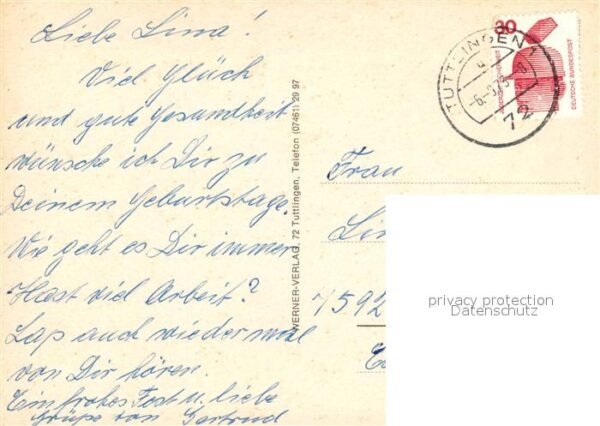 Liebe Lina!
Viel Glück
und gute Gesundheit
wünsche ich Dir zu
Deinem Geburtstage.
Wie geht es Dir immer
Hast viel Arbeit?
Laß auch wieder mal
von Dir hören.
Ein frohes Fest u. liebe
Grüße von Gertrud
WERNER-VERLAG, 72 Tuttlingen, Telefon (07461) 29 97
TUTTLINGEN 1
72
30
DEUTSCHE BUNDESPOST
Frau
7592
privacy protection
Datenschutz